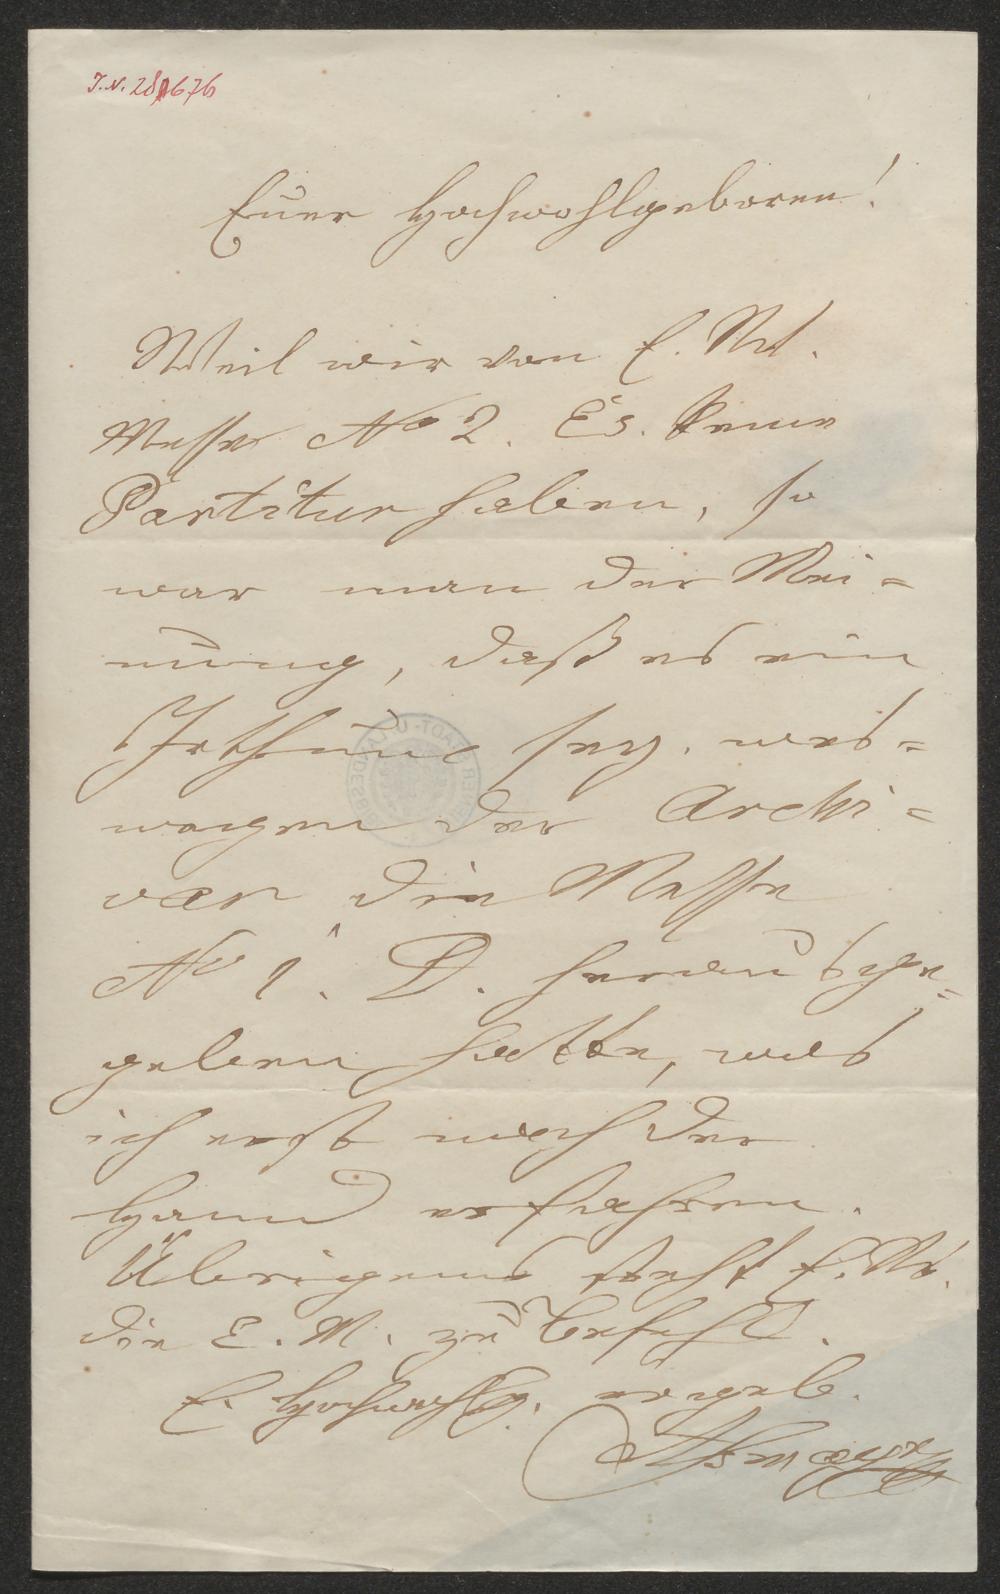 J.N. 281676
Euer Hochwohlgeboren!
Weil wir von E. W.
Messe No 2. Es. keine
Partitur haben, so
war man der Mei=
nung, daß es ein
Irthum sey. wes=
wegen der Archi=
var die Messe
No 1. D. herausge=
geben hatte, was
ich erst nach der
Hand erfahren.
Übrigens steht E. W.
die E. M. zu Befehl.
E. Hochwohlg. ergeb.
Aßmayr